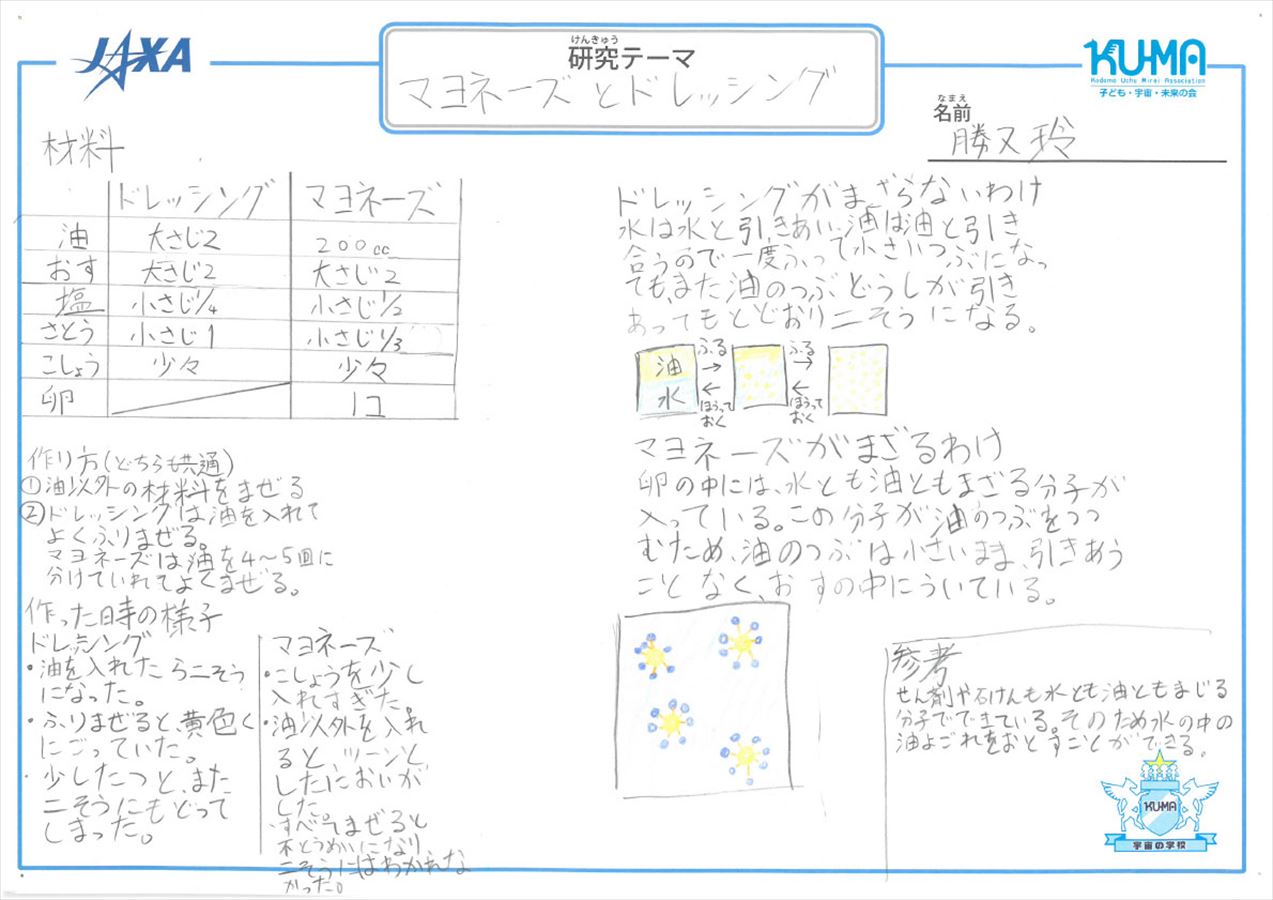 JAXA
けんきゅう
研究テーマ
マヨネーズとドレッシング
KU-MA
Kodomo Uchu Mirai Association
子ども・宇宙・未来の会
なまえ
名前
勝又 玲
材料
ドレッシング マヨネーズ
油 大さじ2 200cc
おす 大さじ2 大さじ2
塩 小さじ1/4 小さじ1/2
さとう 小さじ1 小さじ1/3
こしょう 少々 少々
卵 1コ
作り方(どちらも共通)
①油以外の材料をまぜる
②ドレッシングは油を入れて
よくふりまぜる。
マヨネーズは油を4〜5回に
分けていれてよくまぜる。
作った時の様子
ドレッシング
・油を入れたら二そう
になった。
・ふりまぜると、黄色く
にごっていた。
・少したつと、また
二そうにもどって
しまった。
マヨネーズ
・こしょうを少し
入れすぎた。
・油以外を入れ
ると、ツーンと
したにおいが
した。
・すべてまぜると
不とうめいになり、
二そうにはわかれな
かった。
ドレッシングがまざらないわけ
水は水と引きあい、油は油と引き
合うので一度ふって小さいつぶになっ
ても、また油のつぶどうしが引き
あってもとどおり二そうになる。
油
水
ふる
→
←
ほうって
おく
ふる
→
←
ほうって
おく
マヨネーズがまざるわけ
卵の中には、水とも油ともまざる分子が
入っている。この分子が油のつぶをつつ
むため、油のつぶは小さいまま、引きあう
ことなく、おすの中にういている。
参考
せん剤や石けんも水とも油ともまじる
分子でできている。そのため水の中の
油よごれをおとすことができる。
KU-MA
宇宙の学校